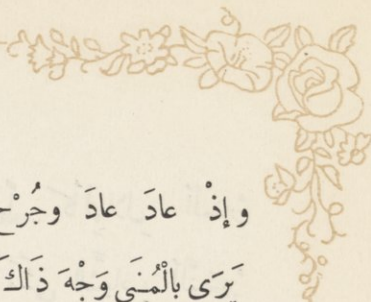 و إذْ عادَ عادَ وجُرْح
يَرَى بالْمُنَى وَجْهَ ذَاكَ